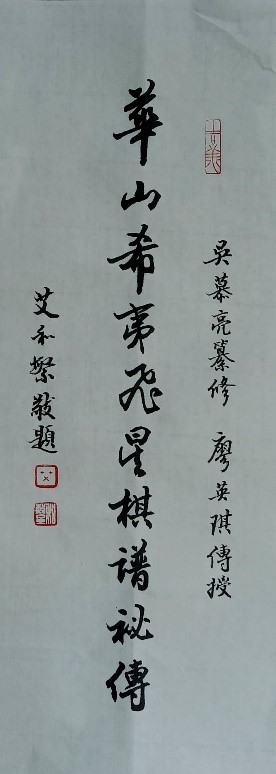 吳慕亮纂修 廖英琪傳授
華山希夷飛星棋譜祕傳
艾禾繁敬題